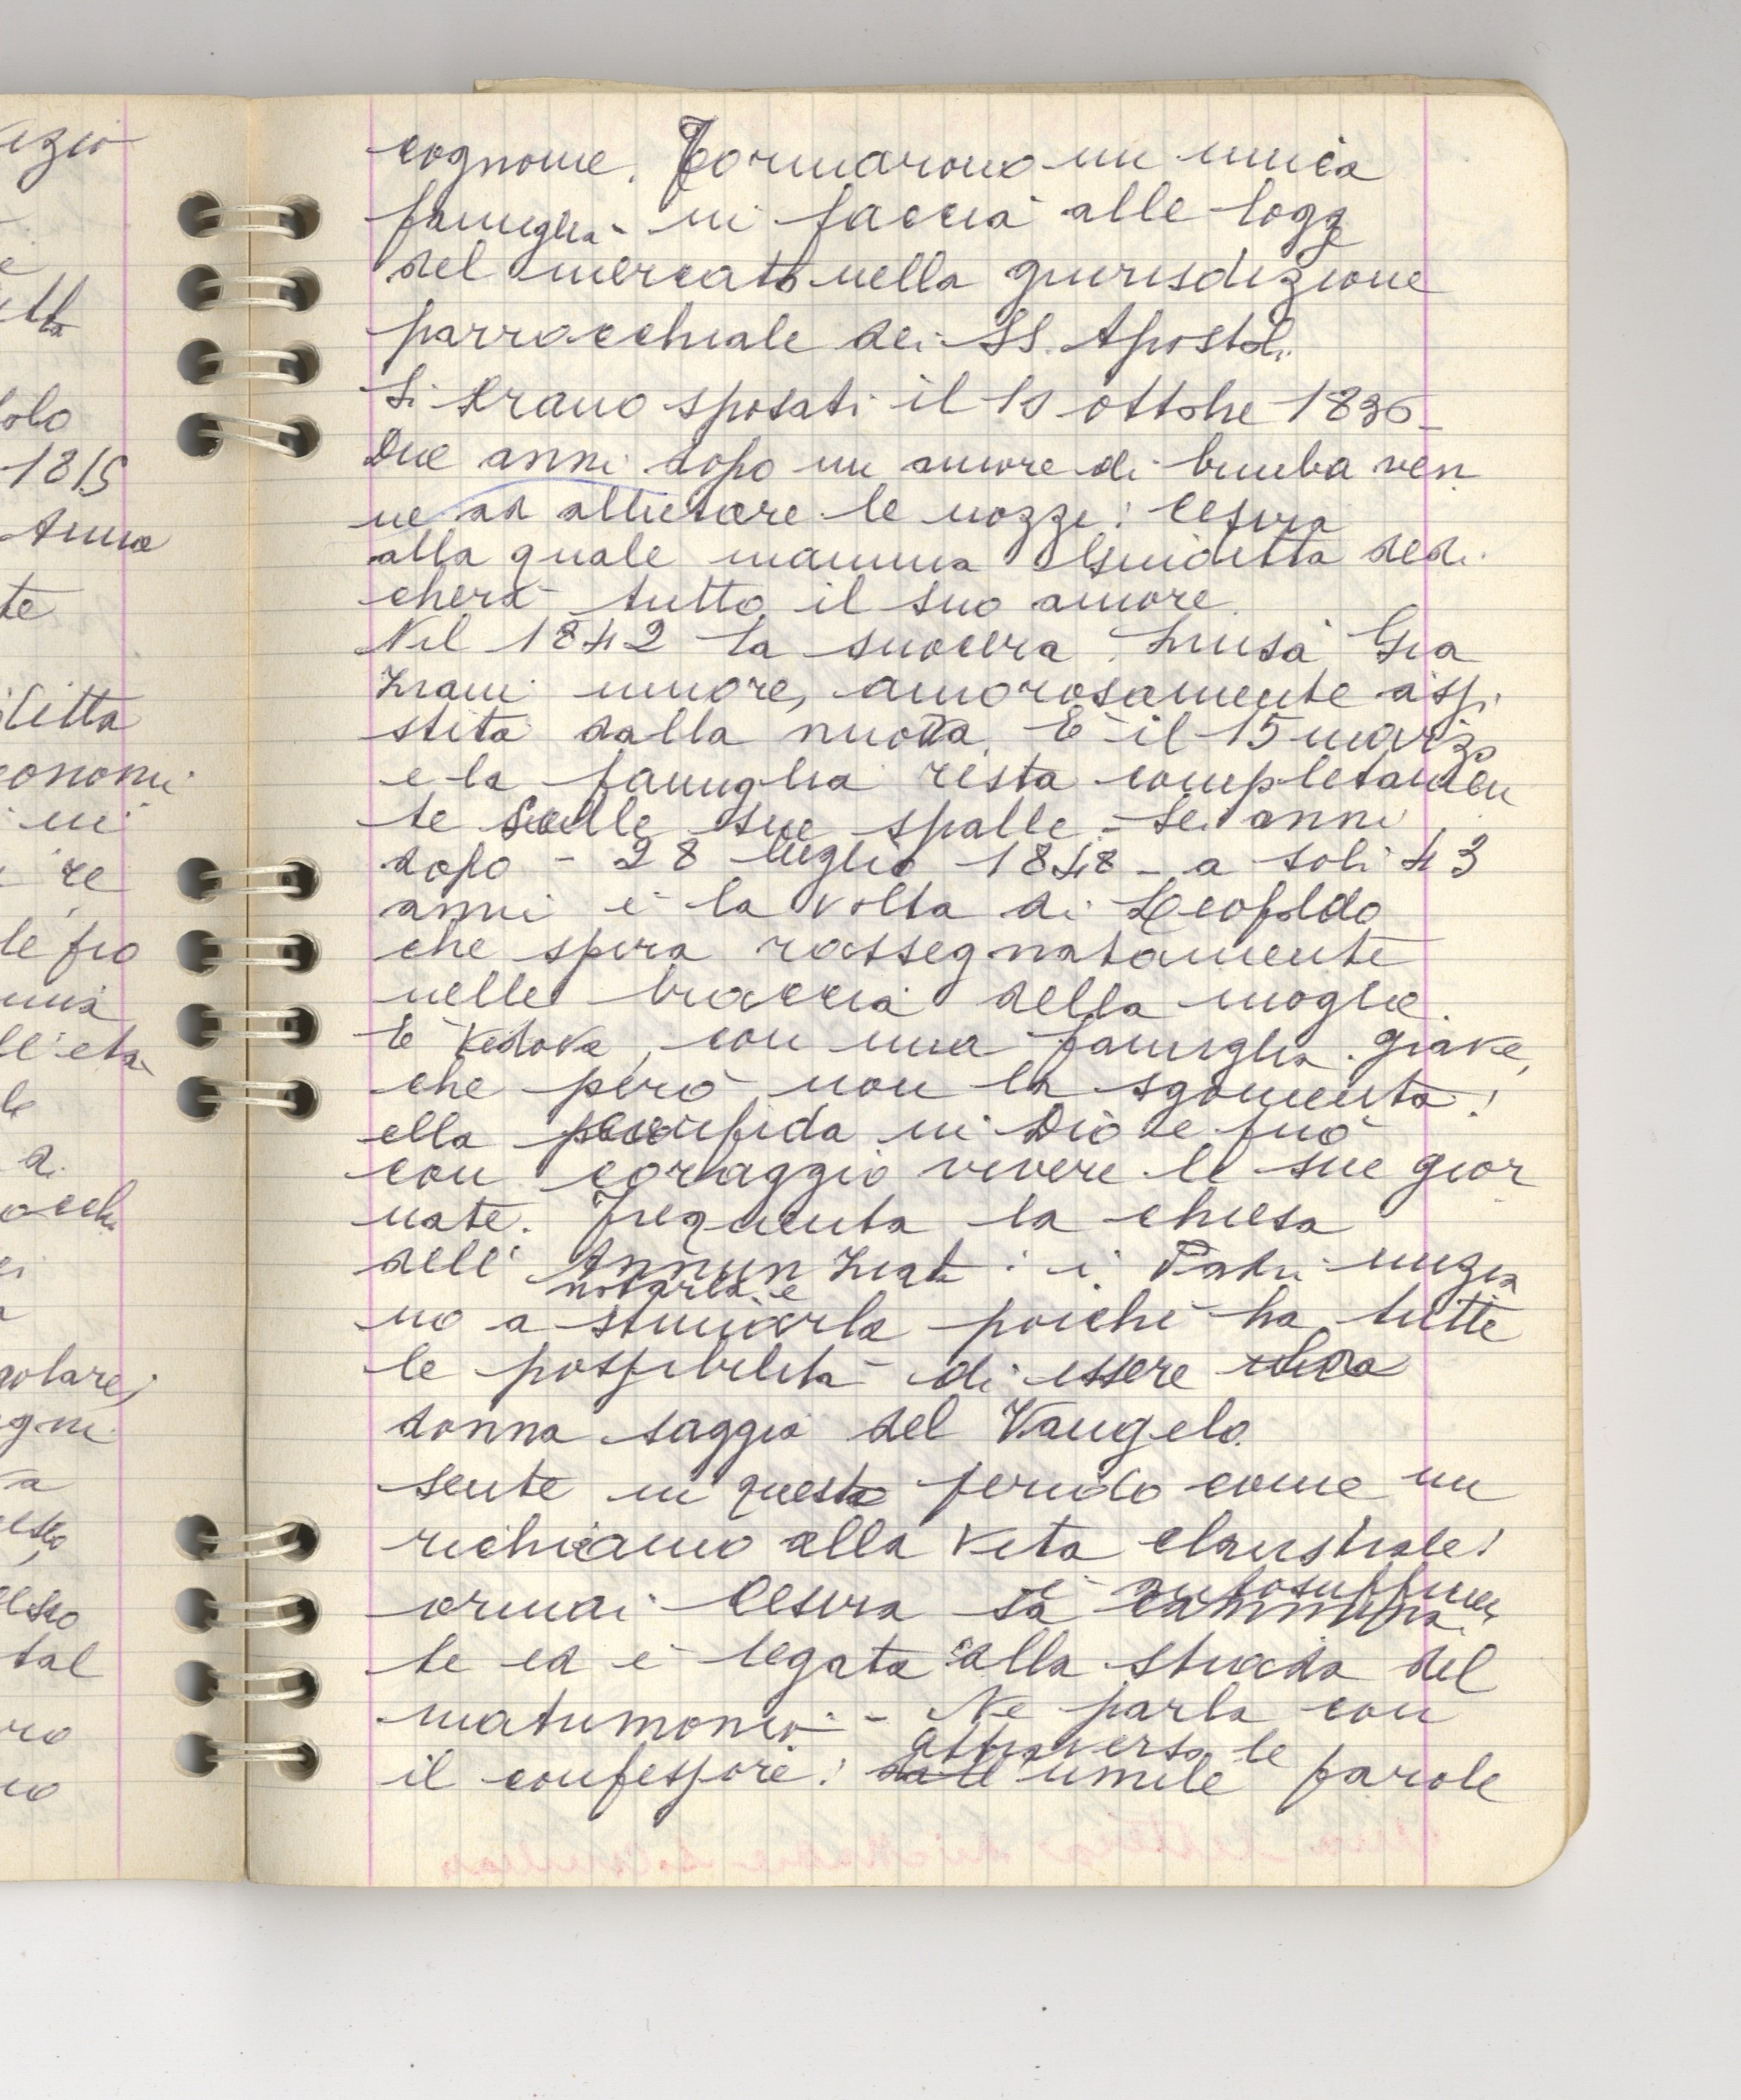 ezio
olo
1815
Anna
te
ditta
conomi
in
re
le fio
una
ll'età
le
a.
occhi
golare,
ogni
va
esso
tal
ro
no
cognome. Formarono un unica
famiglia - in faccia alle logge
del mercato nella giurisdizione
parrocchiale dei SS. Apostoli.
Si erano sposati il 10 ottobre 1836 -
Due anni dopo un amore di bimba ven
ne ad allietare le nozze: Cesira
alla quale mamma Giuditta dedi
cherà tutto il suo amore.
Nel 1842 la suocera Luisa Gra
ziani muore, amorosamente assi
stita dalla nuora. È il 15 marzo
e la famiglia resta completamen
te sulle sue spalle. Sei anni
dopo - 28 luglio 1848 - a soli 43
anni è la volta di Leopoldo
che spira rassegnatamente
nelle braccia della moglie.
È vedova, con una famiglia grave,
che però non la sgomenta:
ella confida in Dio e può
con coraggio vivere le sue gior
nate. Frequenta la chiesa
dell'Annunziata: i Padri inizia
notarla e
no a stimarla poiché ha tutte
le possibilità di essere
donna saggia del Vangelo.
Sente in questo periodo come un
richiamo alla vita claustrale:
è autosufficien
ormai Cesira sa cammina
te ed è legata alla strada del
matrimonio - Ne parla con
attraverso le
il confessore: dall'umile parole